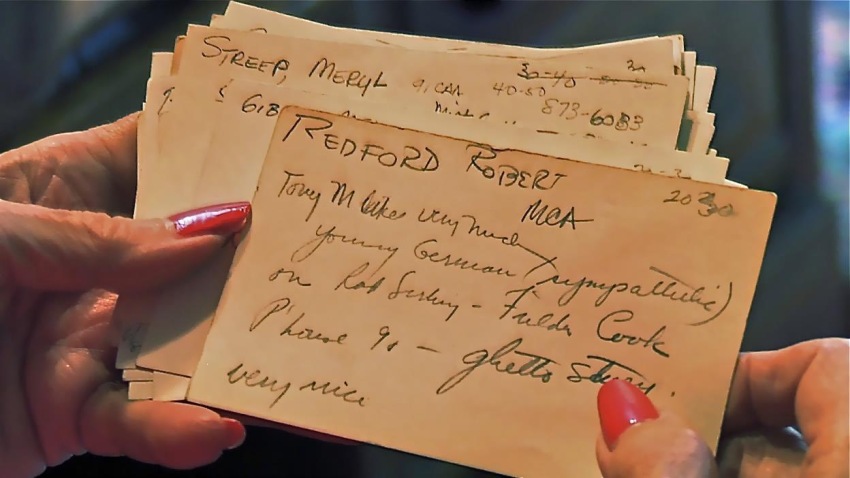 STREEP, MERYL 9, CAA 40-50
30-40
873-6083
$ 618
REDFORD ROBERT 20 30
MCA
Tony M likes very much
young German (sympathetic)
on Rod Serling - Fielder Cook
P'house 90 - ghetto story.
very nice